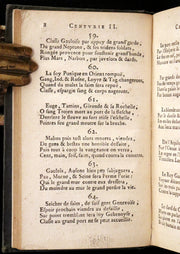 8 CENTVRIE II.
59.
Classe Gauloise par appuy de grand garde,
Du grand Neptune, & ses tridens soldars,
Rongée prouence pour soustenir grand bande,
Plus Mars, Narbon, par javelots & dards.
60.
La foy Punique en Orient rompuë,
Gang, Iud, & Rosne, Loyre & Tag changeront,
Quand du mulet la faim sera repuë,
Classe, espargie sang & corps nageront.
61.
Euge, Tamins, Gironde & la Rochelle,
O sang Troyen mort au port de la
Derriere le fleuue au fort mise l'eschelle,
Pointes feu grand meurtre sus la breche.
62.
Mabus puis tost alors mourra, viendra,
De gens & bestes vne horrible defaite,
Puis tout à coup la vengeance on verra,
Cent, main, soif, faim, quand courra la comette.
63.
Gaulois, Ausone bien peu subiuguera,
Pau, Marne, & Seine fera Perme
Qui le grand mur contre eux dressera,
Du moindre au mur le grand perdre la vie.
64.
Seicher de faim, de soif gent Geneuoise,
Espoir prochain viendra au defaillir,
Sur point tremblant sera loy Gebenoise,
Classe au grand port ne se peut accueillir.